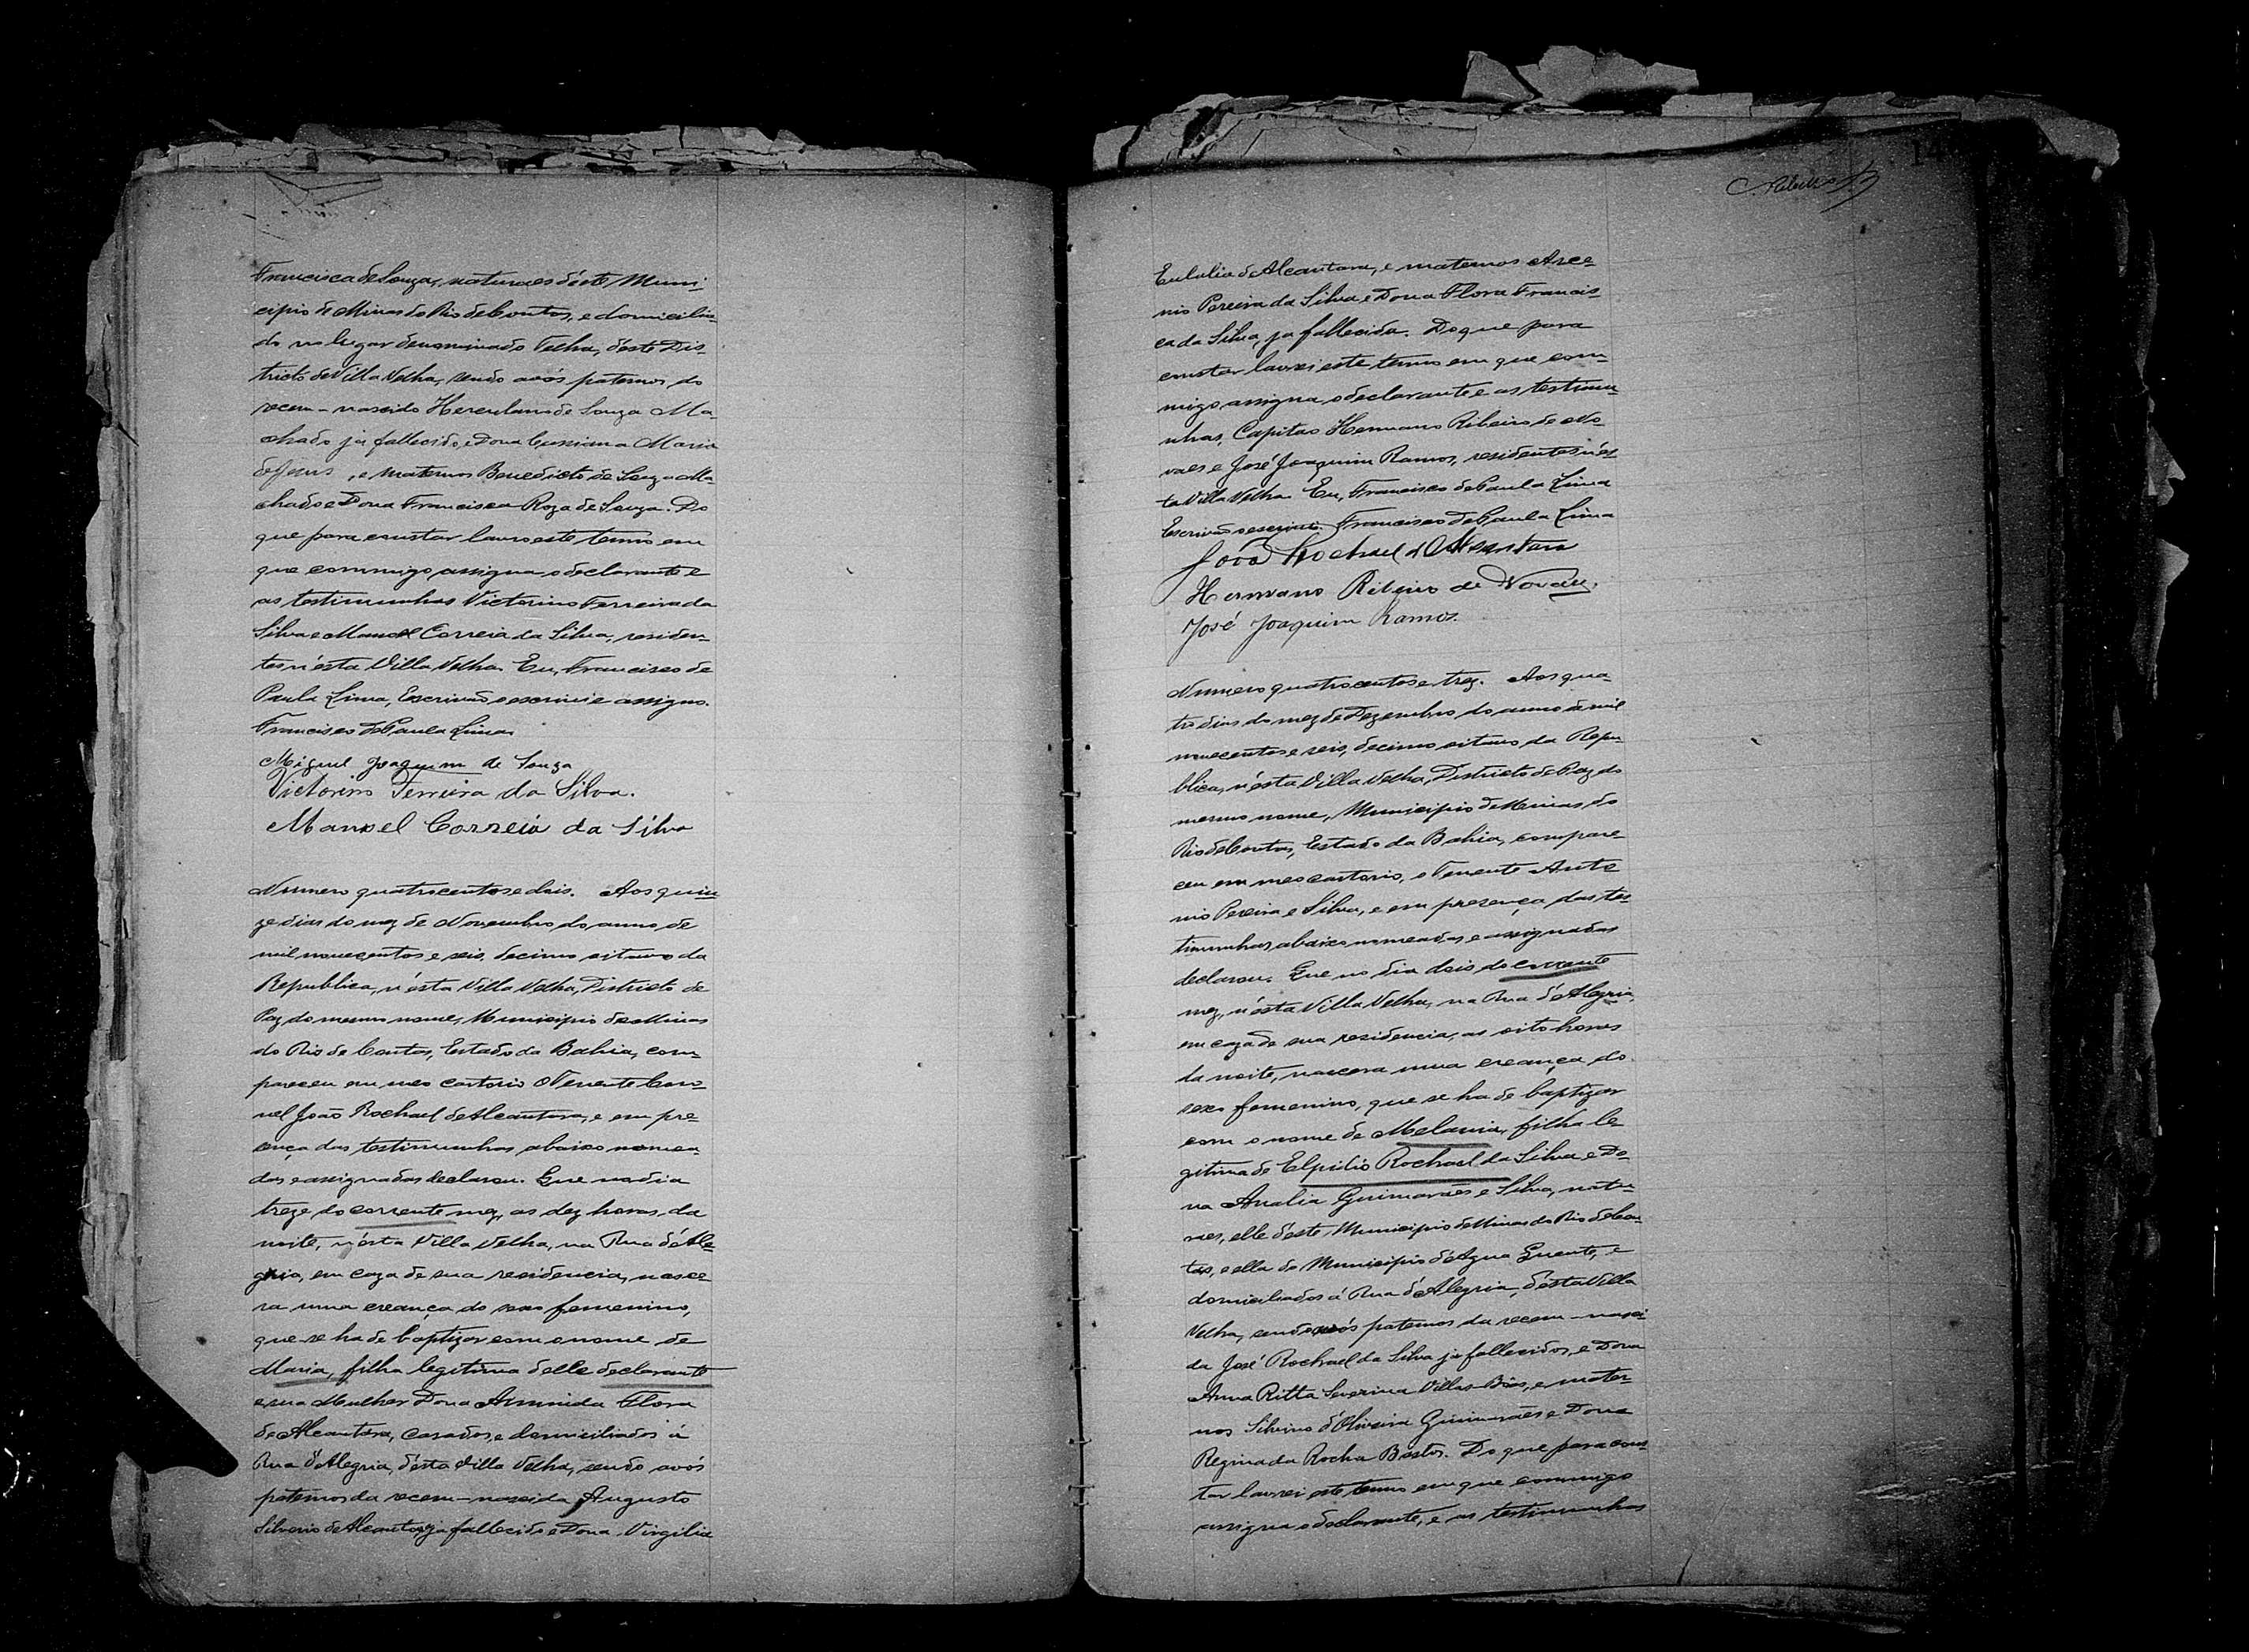 Francisca de Souza, naturaes d'este Muni-
cipio de Minas do Rio de Contas, e domicilia-
do no lugar denominado Telha, d'este Dis-
tricto de Villa Velha, sendo avós paternos do
recem-nascido Herculano de Souza Ma-
chado já fallecido, e Dona Cussiana Maria
de Jesus, e maternos Benedicto de Souza Ma-
chado e Dona Francisca Roza de Souza. Do
que para constar lavro este termo em
que commigo assigna o declarante e
as testimunhas Victorino Ferreira da
Silva e Manoel Correia da Silva, residen-
tes n'esta Villa Velha. Eu, Francisco de
Paula Lima, Escrivão escrivi e assigno.
Francisco de Paula Lima
Miguel Joaquim de Souza
Victorino Ferreira da Silva.
Manoel Correia da Silva
Numero quatrocentos e dois. Aos quin-
ze dias do mez de Novembro do anno de
mil novecentos e seis, decimo oitavo da
Republica, n'esta Villa Velha, Districto de
Paz do mesmo nome, Municipio de Minas
do Rio de Contas, Estado da Bahia, com-
pareceu em meo cartorio o Tenente Coro-
nel João Rochael de Alcantara, e em pre-
sença das testimunhas abaixo nomea-
das e assignadas declarou. Que no dia
treze do corrente mez, as dez horas da
noite, n'esta Villa Velha, na Rua d'Ale-
gria, em caza de sua residencia, nasce-
ra uma creança do sexo femenino,
que se ha de baptizar com o nome de
Maria, filha legitima delle declarante
e sua Mulher Dona Arminida Flora
de Alcantara, casados, e domiciliados á
Rua d'Alegria, d'esta Villa Velha, sendo avós
paternos da recem-nascida Augusto
Silverio de Alcantara, ja fallecido e Dona Virgilia
C. Ribeiro
14
Eulalia de Alcantara, e maternos Arce-
nio Pereira da Silva e Dona Flora Francis-
ca da Silva, ja fallecida. Do que para
constar lavrei este termo em que com-
migo assigna o declarante e as testimu-
nhas, Capitão Hermano Ribeiro de No-
vaes e José Joaquim Ramos, residentes n'es-
ta Villa Velha. Eu, Francisco de Paula Lima
Escrivão escrivi. Francisco de Paula Lima
João Rochael d'Alcantara
Hermano Ribeiro de Novaes.
José Joaquim Ramos.
Numero quatrocentos e trez. Aos qua-
tro dias do mez de Dezembro do anno de mil
novecentos e seis, decimo oitavo da Repu-
blica, n'esta Villa Velha, Districto de Paz do
mesmo nome, Municipio de Minas do
Rio de Contas, Estado da Bahia, compare-
ceu em meo cartorio, o Tenente Anto
nio Pereira e Silva, e em presença das tes-
timunhas abaixo nomeadas e assignadas
declarou. Que no dia dois do corrente
mez, n'esta Villa Velha, na Rua d'Alegria,
em caza de sua residencia, as oito horas
da noite, nascera uma creança do
sexo femenino, que se ha de baptizar
com o nome de Melania, filha le-
gitima de Elpidio Rochael da Silva e Do-
na Analia Guimarães e Silva, natu-
raes, elle d'este Municipio de Minas do Rio de Con-
tas, e ella do Municipio d'Agua Quente, e
domiciliados á Rua d'Alegria, d'esta Villa
Velha, sendo avós paternos da recem-nasci-
da José Rochael da Silva já fallecidos, e Dona
Anna Ritta Severina Villas-Bôas, e mater-
nos Silvino d'Oliveira Guimarães e Dona
Regina da Rocha Bastos. Do que para cons-
tar lavrei este termo em que commigo
assigna o declarante, e as testimunhas